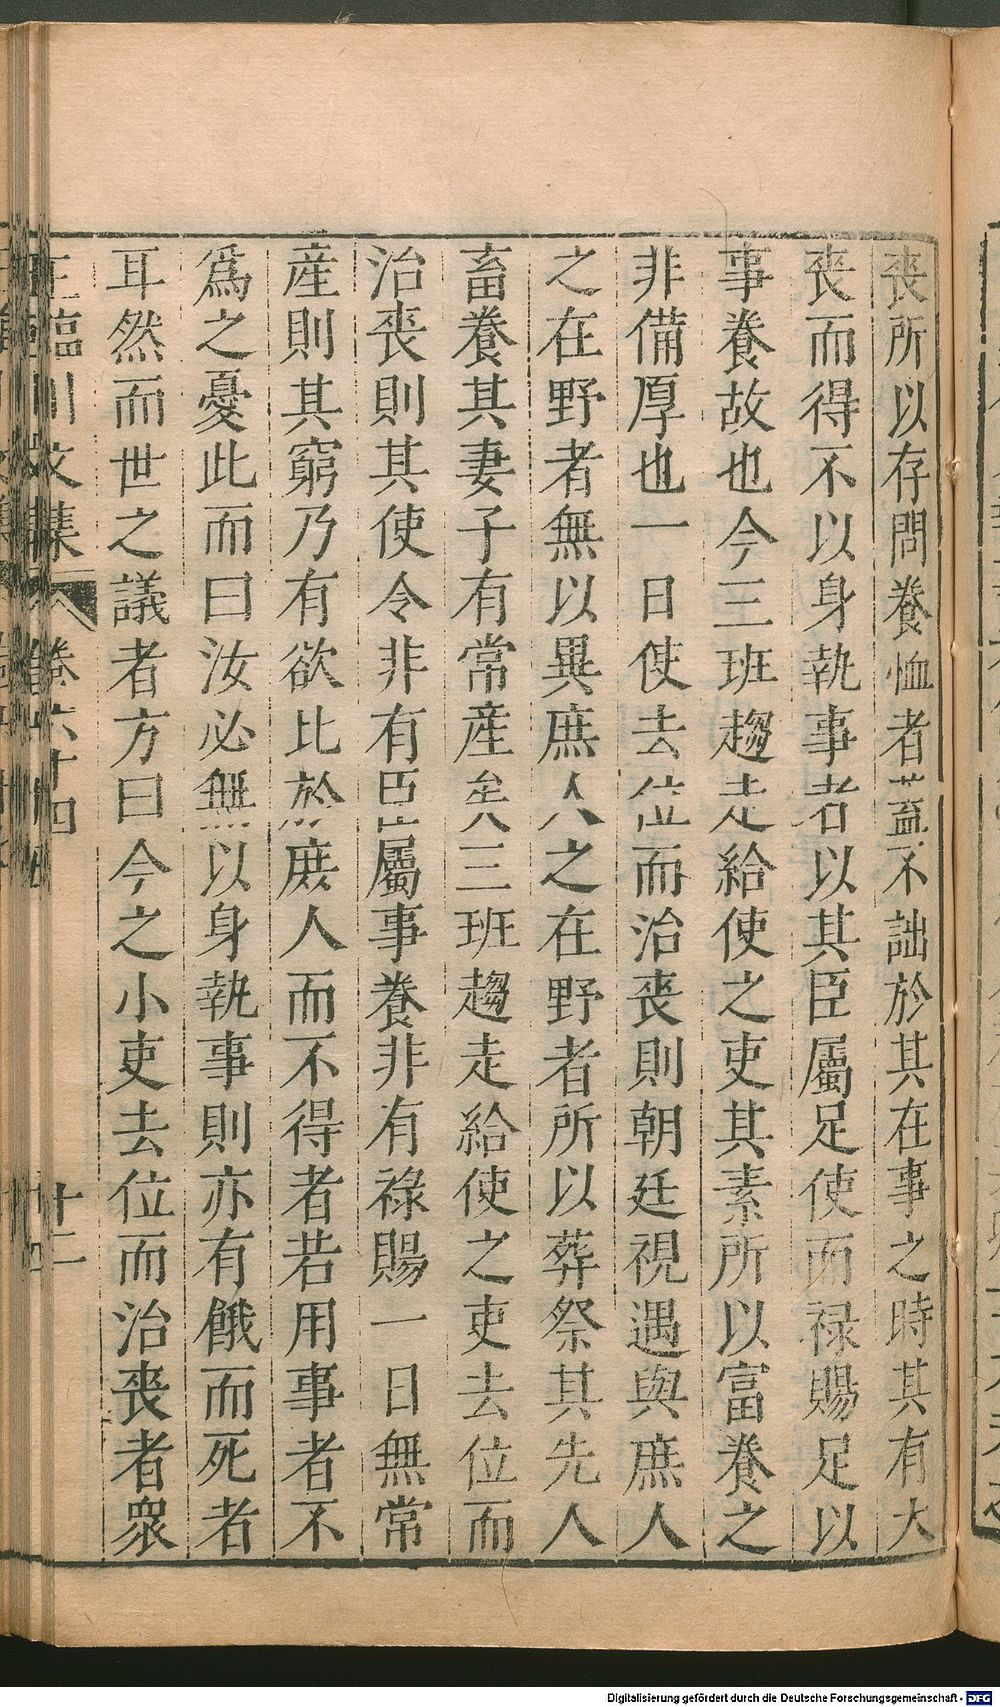 喪所以存問養恤者葢不詘於其在事之時其有大
喪而得不以身執事者以其臣屬足使而祿賜足以
事養故也今三班趨走給使之吏其素所以富養之
非備厚也一日使去位而治喪則朝廷視遇與庶人
之在野者無以異庶人之在野者所以葬祭其先人
畜養其妻子有常產矣三班趨走給使之吏去位而
治喪則其使令非有臣屬事養非有祿賜一日無常
產則其窮乃有欲比於庶人而不得者若用事者不
爲之憂此而曰汝必無以身執事則亦有餓而死者
耳然而世之議者方曰今之小吏去位而治喪者衆
王臨川文集 卷六十四 十二
Digitalisierung gefördert durch die Deutsche Forschungsgemeinschaft - DFG